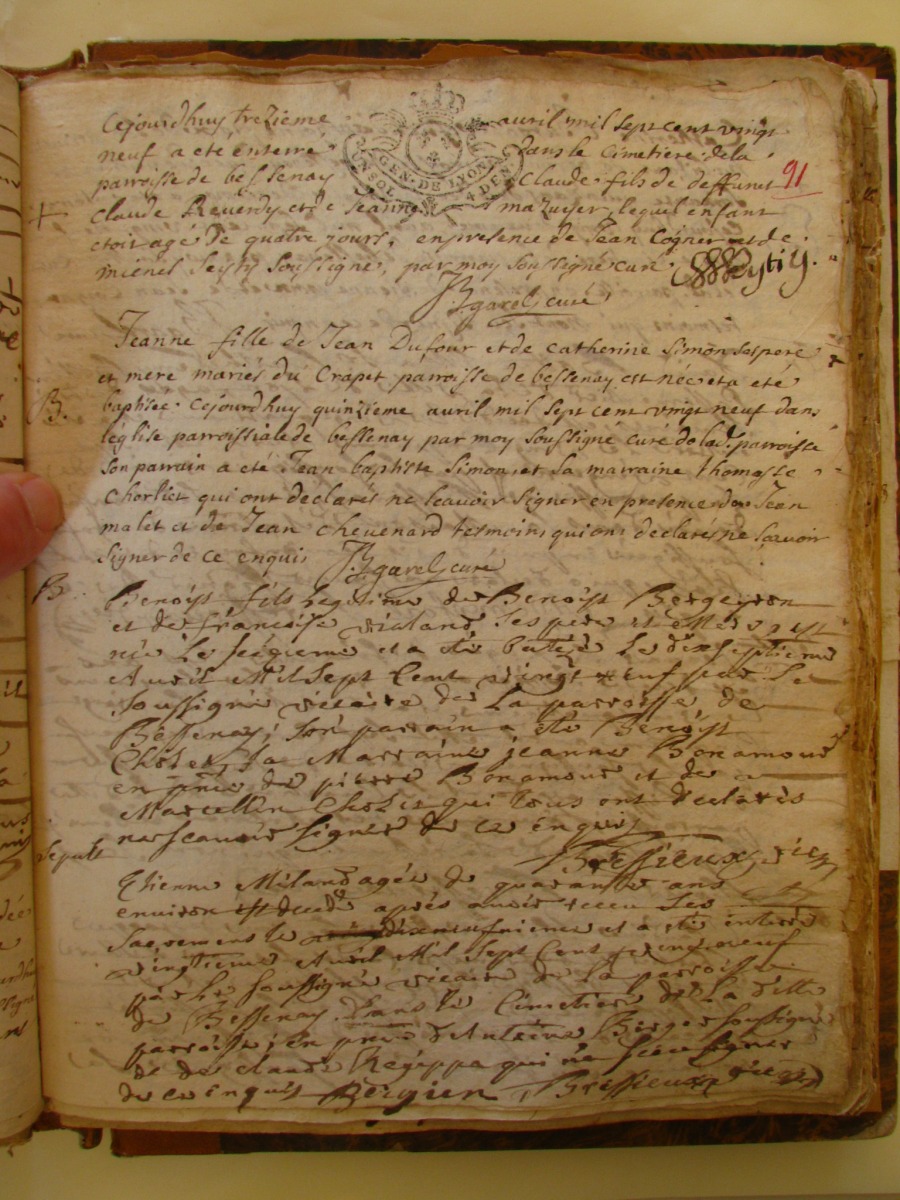 GEN. DE LYON
91
Cejourdhuy treZieme avril mil sept cent vingt
neuf a eté enterré dans le Cimetiere dela
parroisse de bessenay Claude fils de deffunct
+ Claude Reverdy et de Jeanne mazuyer, lequel enfant
etoit agé de quatre jours, en presence de Jean Cogner et de
michel Seytiy soussigné, par moy soussigné curé. Seytiy.
garel curé
Jeanne fille de Jean Dufour et de Catherine Simon ses pere
et mere mariés du Crapet parroisse de bessenay est née et a eté
B. baptisée Cejourdhuy quinzieme avril mil sept cent vingt neuf dans
l'église parroissiale de bessenay par moy soussigné curé de lad. parroisse
son parrain a eté Jean baptiste Simon, et sa marraine thomasse
Chorliet qui ont declarés ne scavoir signer en presence de Jean
malet et de Jean Chevenard tesmoins qui ont declarés ne scavoir
signer de ce enquis garel curé
B. Benoist fils legitime de Benoist Bergeron
et de francoise vialand ses pere et mere est
née le seizieme et a eté batisé le dixseptieme
Avril Mil Sept Cent vingt neuf par le
soussigné vicaire de la parroisse de
Bessenay; son parrain a eté Benoist
Cholet, sa Marraine jeanne Bonamour
en pnce de pierre Bonamour et de
Marcellin Cholet qui tous ont declarés
ne scavoir signer de ce enquis
Bressieux vic
Sepult
Etienne Miland agée de quarante ans
environ est decedé aprés avoir receu les
sacremens le dixneufvieme et a eté enterré
vingtieme Avril Mil Sept Cent vingt neuf
par le soussigné vicaire de la parroisse
de Bessenay dans le Cimetiere de la ditte
parroisse, en pnce d'Antoine Berger soussigné
de claude qui n'a sceu signer
de ce enquis Bergier Bressieux vic